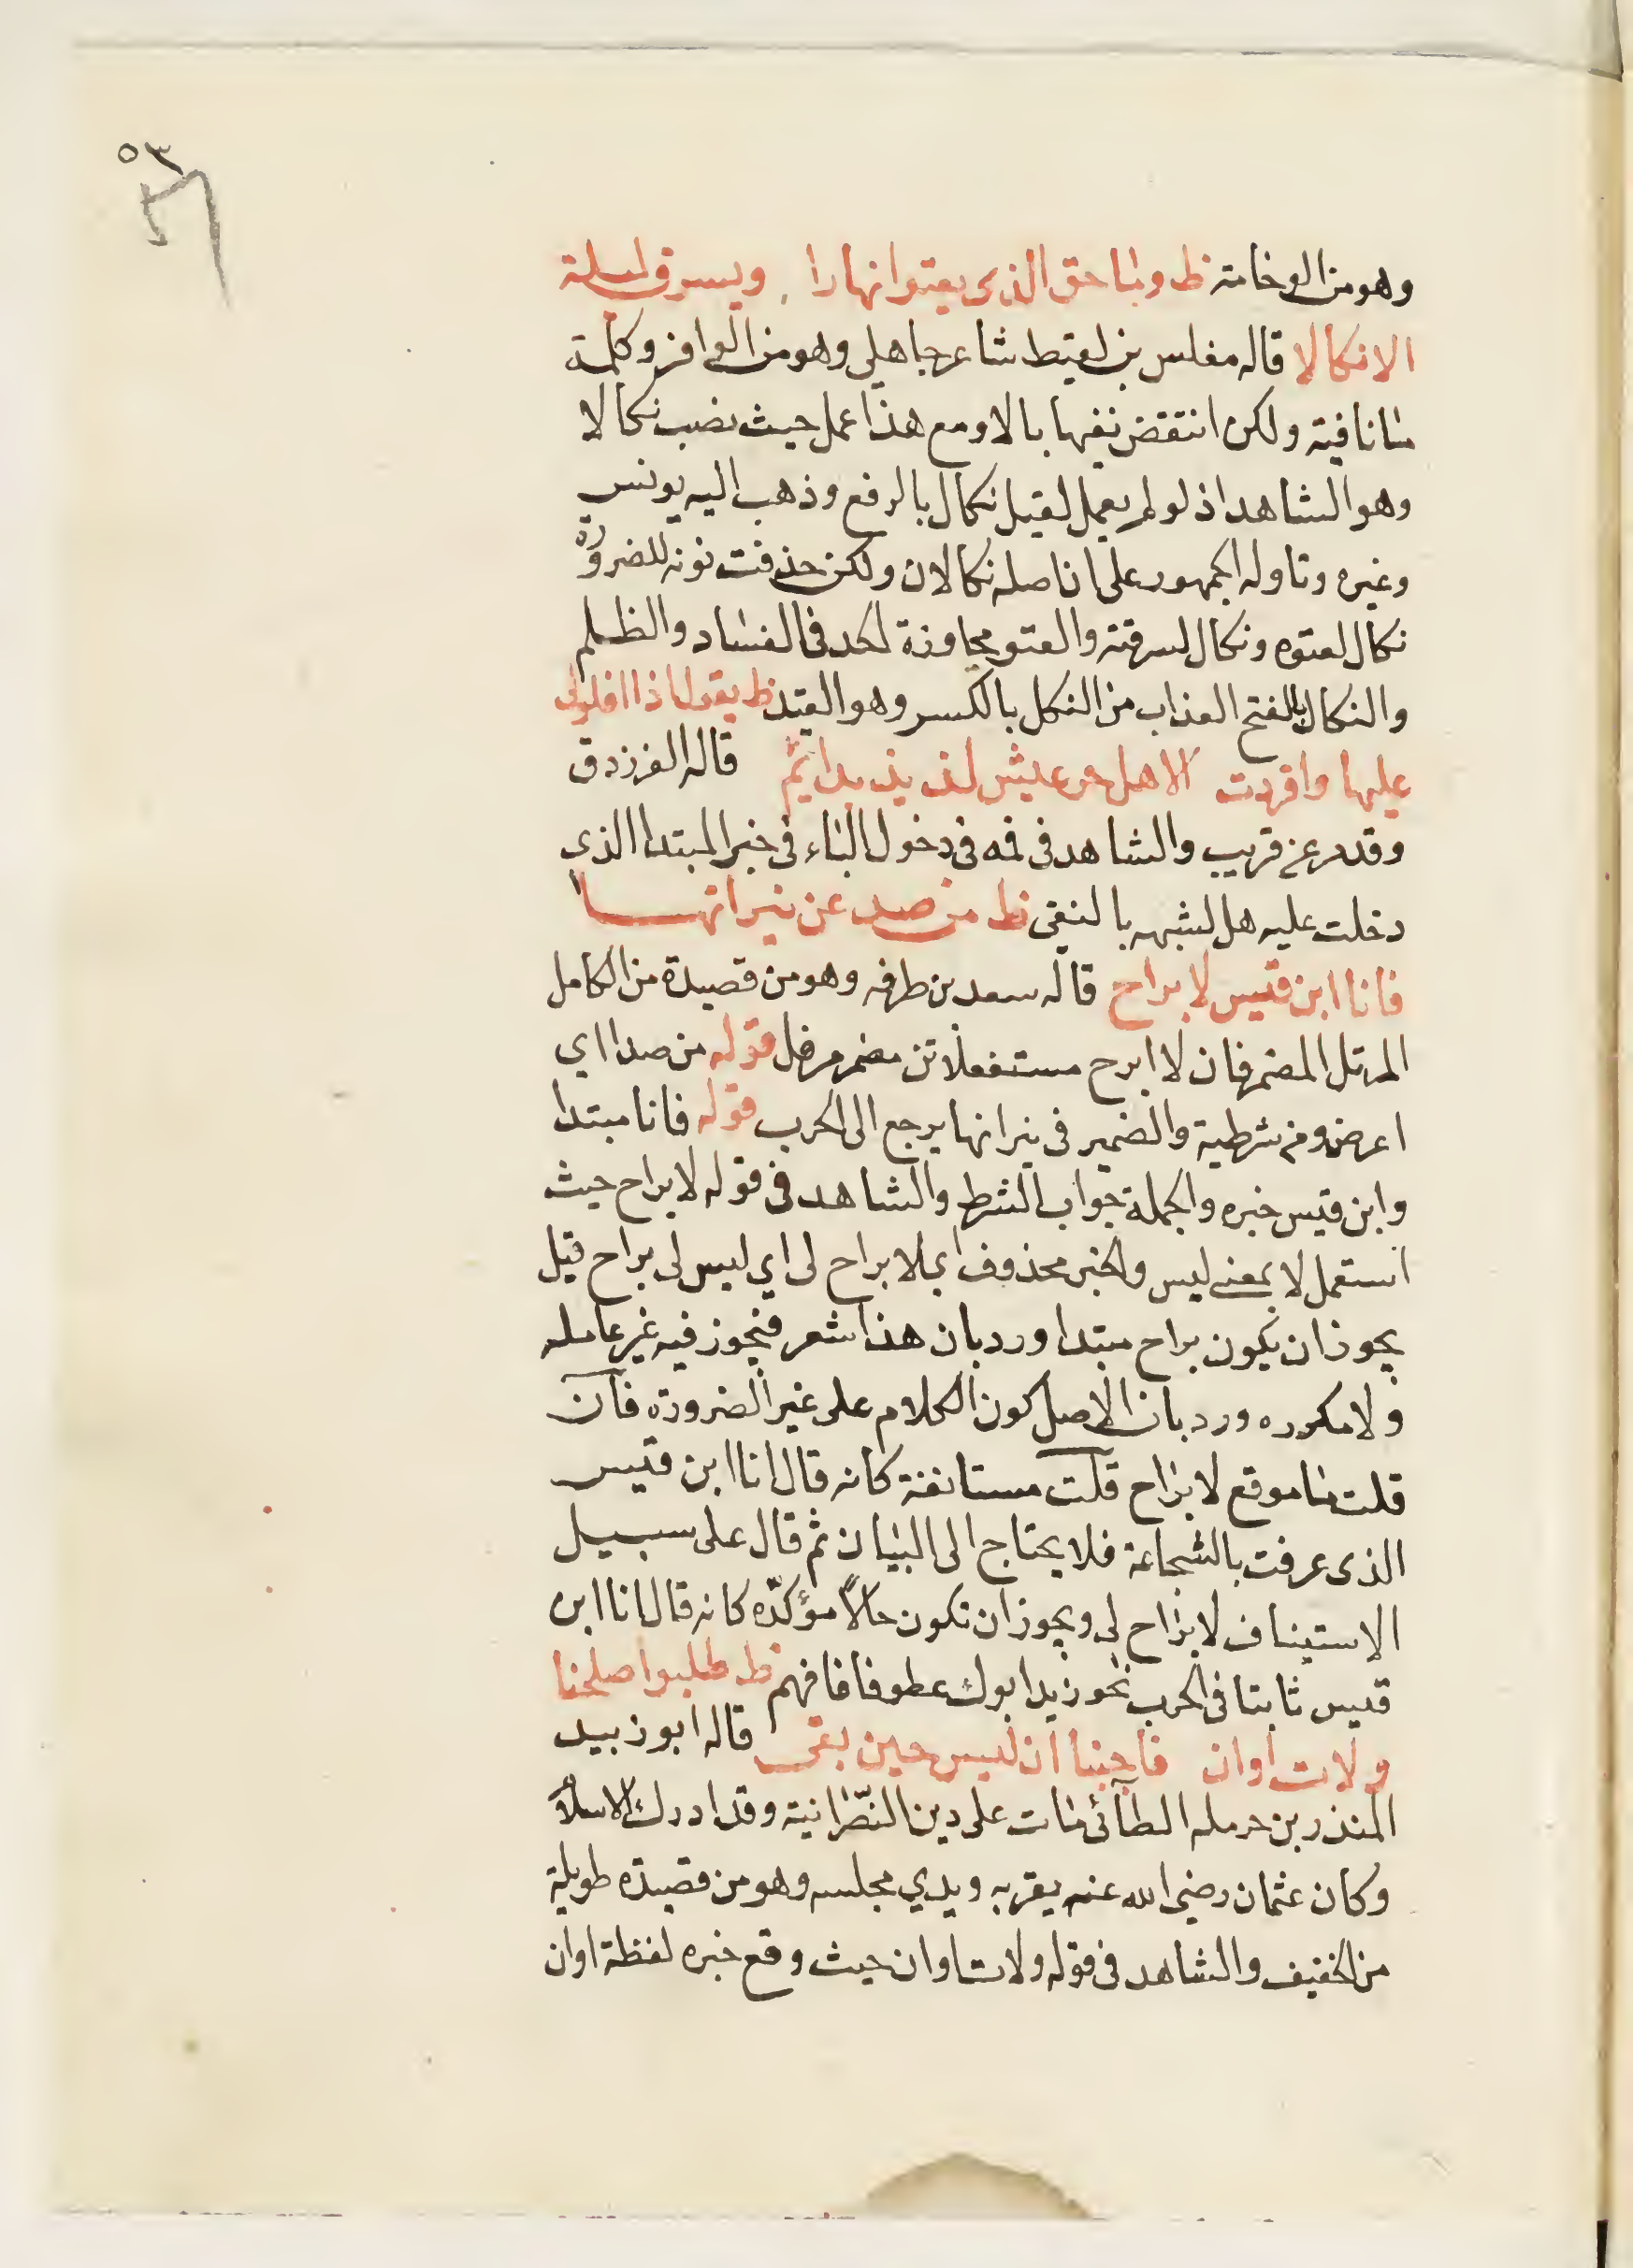 ٥٣
وهو من الوخامة ظ وما حق الذي يعتوا نهارا ويسرق ليله
الا نكالا قاله مغلس بن لقيط شاعر جاهلي وهو من الوافر وكلمة
ما نافية ولكن انتقض نفيها بالا ومع هذا عمل حيث نصب نكالا
وهو الشاهد اذ لو لم يعمل لقيل نكال بالرفع وذهب اليه يونس
وغيره وتاوله الجمهور على ان اصله نكالان ولكن حذفت نونه للضرورة
نكال لعتوه ونكال لسرقته والعتو مجاوزة الحد في الفساد والظلم
والنكال بالفتح العذاب من النكل بالكسر وهو القيد ظ يقول اذا اقلولى
عليها واقردت الا هل اخو عيش لذيذ بدايم قاله الفرزدق
وقد مر عن قريب والشاهد فى فى دخول الباء فى خبر المبتدا الذى
دخلت عليه هل لشبهه بالنفى ظ من صد عن نيرانها
فانا ابن قيس لا براح قاله سعد بن طرفه وهو من قصيدة من الكامل
المرفل المضمر فان لا ابرح مستفعلاتن مضمر مرفل قوله من صد اي
اعرض ومن شرطية والضمير فى نيرانها يرجع الى الحرب قوله فانا مبتدا
وابن قيس خبره والجملة جواب الشرط والشاهد فى قوله لا براح حيث
استعمل لا بمعنى ليس والخبر محذوف اي لا براح لى اي ليس لى براح قيل
يجوز ان يكون براح مبتدا ورد بان هذا شعر فيجوز فيه غير عامله
ولا مكرره ورد بان الاصل كون الكلام على غير الضرورة فان
قلت ما موقع لا براح قلت مستانفة كانه قال انا ابن قيس
الذى عرفت بالشجاعة فلا يحتاج الى البيان ثم قال على سبيل
الاستيناف لا براح لى ويجوز ان تكون حالا مؤكدّه كانه قال انا ابن
قيس ثابتا فى الحرب نحو زيد ابوك عطوفا فافهم ظ طلبوا صلحنا
ولات اوان فاجبنا ان ليس حين بقى قاله ابو زبيد
المنذر بن حرمله الطآئى مات على دين النصّرانية وقد ادرك الاسلام
وكان عثمان رضى الله عنه يقربه ويدني مجلسه وهو من قصيدة طويلة
من الخفيف والشاهد فى قوله ولات اوان حيث وقع خبره لفظة اوان